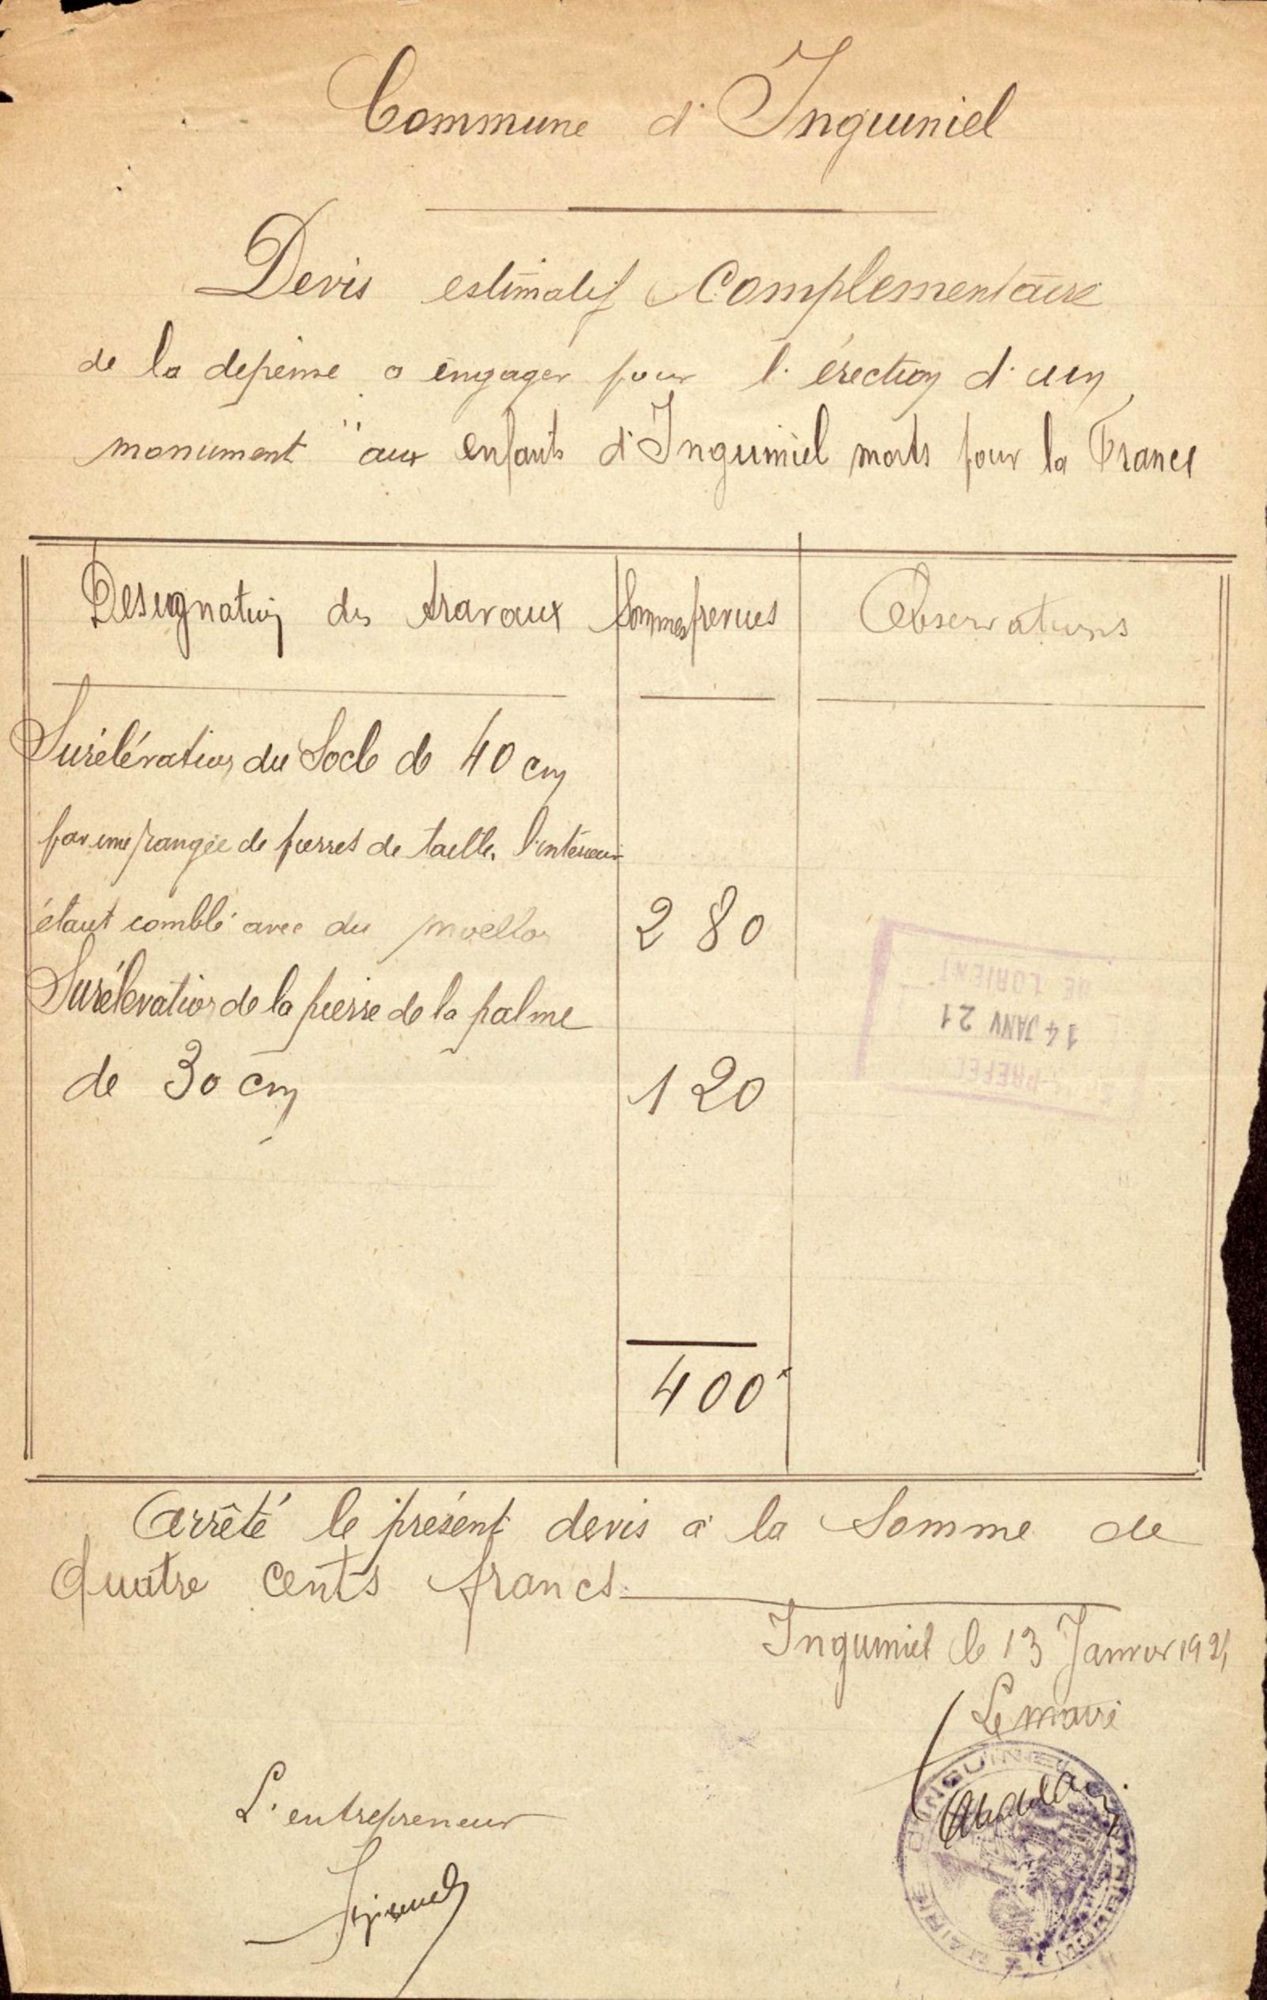 Commune d'Inguiniel
Devis estimatif complementaire
de la depense a engager pour l'érection d'un
monument "aux enfants d'Inguiniel morts pour la France
Designation des travaux
Sommes prevues
Observations
Surélévation du Socle de 40 cm
par une rangée de pierres de taille, l'intérieur
étant comblé avec du moellon
280
Surélévation de la pierre de la palme
de 30 cm
120
SOUS-PREFEC
14 JANV 21
DE LORIENT
400
Arrêté le présent devis à la Somme de
Quatre cents francs.
Inguiniel le 13 Janvier 1921
Le maire
MAIRIE D'INGUINIEL MORBIHAN
L'entrepreneur